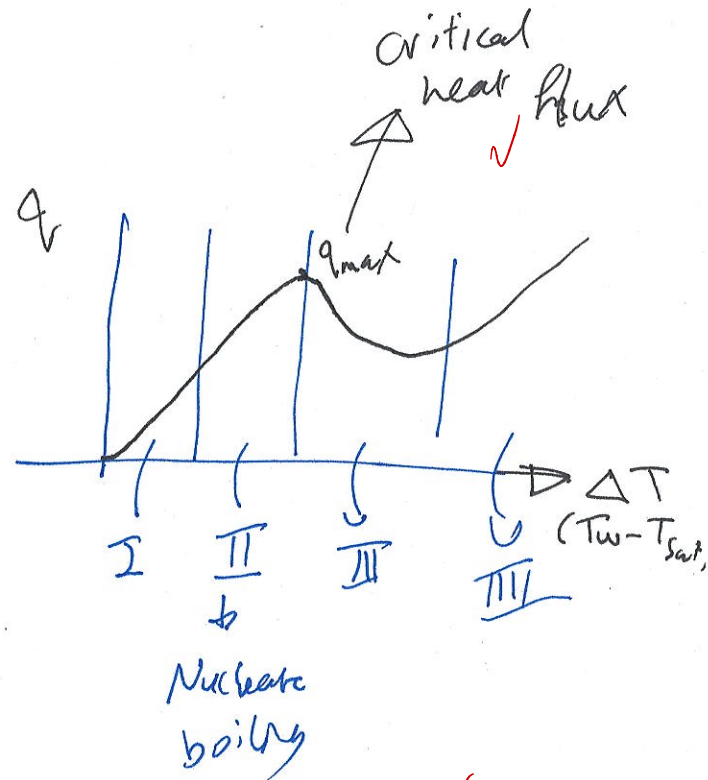 critical
heat flux
q
qmax
ΔT
(Tw-Tsat,
I
II
III
IIII
b
Nucleate
boiling